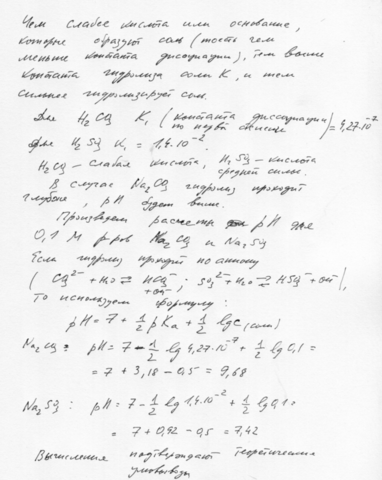 Чем слабее кислота или основание,
которые образуют соль (то есть чем
меньше константа диссоциации), тем выше
константа гидролиза соли K, и тем
сильнее гидролизируется соль.
Для H₂CO₃ K₁ (константа диссоциации по первой ступени) = 4,27·10⁻⁷
Для H₂SO₃ K₁ = 1,4·10⁻².
H₂CO₃ – слабая кислота, H₂SO₃ – кислота
средней силы.
В случае Na₂CO₃ гидролиз проходит
глубже, pH будет выше.
Произведем расчеты pH для
0,1 М р-ров Na₂CO₃ и Na₂SO₃
Если гидролиз проходит по аниону
(CO₃²⁻ + H₂O ⇄ HCO₃⁻ + OH⁻; SO₃²⁻ + H₂O ⇄ HSO₃⁻ + OH⁻),
то используем формулу:
pH = 7 + 1/2 pKa + 1/2 lg c (соли)
Na₂CO₃: pH = 7 – 1/2 lg 4,27·10⁻⁷ + 1/2 lg 0,1 =
= 7 + 3,18 – 0,5 = 9,68
Na₂SO₃: pH = 7 – 1/2 lg 1,4·10⁻² + 1/2 lg 0,1 =
= 7 + 0,92 – 0,5 = 7,42
Вычисления подтверждают теоретические
умовыводы